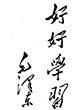 好好學習
毛澤東